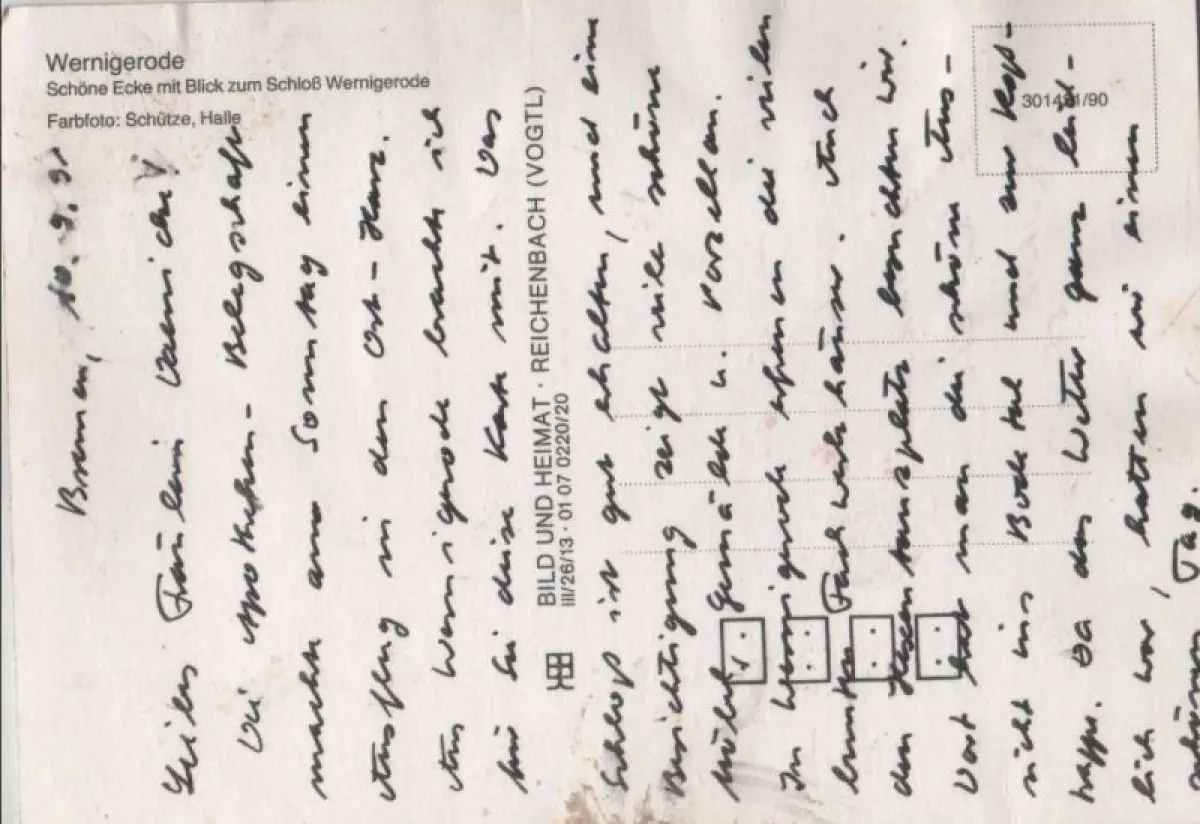 Wernigerode
Schöne Ecke mit Blick zum Schloß Wernigerode
Farbfoto: Schütze, Halle
301481/90
BILD UND HEIMAT · REICHENBACH (VOGTL)
III/26/13 · 01 07 0220/20
Bremen, 10.9.91
Liebes Fräulein
Die Apotheken-Belegschaft
machte am Sonntag einen
Ausflug in den Ost-Harz.
Aus Wernigerode brachte ich
für Sie diese Karte mit. Das
Schloß ist gut erhalten, und eine
Besichtigung zeigt viele schöne
Möbel, Gemälde u. Porzellan.
In Wernigerode erfreuen die vielen
bunten Fachwerkhäuser. Auch
den Hexentanzplatz besuchten wir.
Dort hat man die schöne Aus-
sicht ins Bodetal und zur Roß-
trappe. Da das Wetter ganz leid-
lich war, hatten wir einen
schönen Tag.